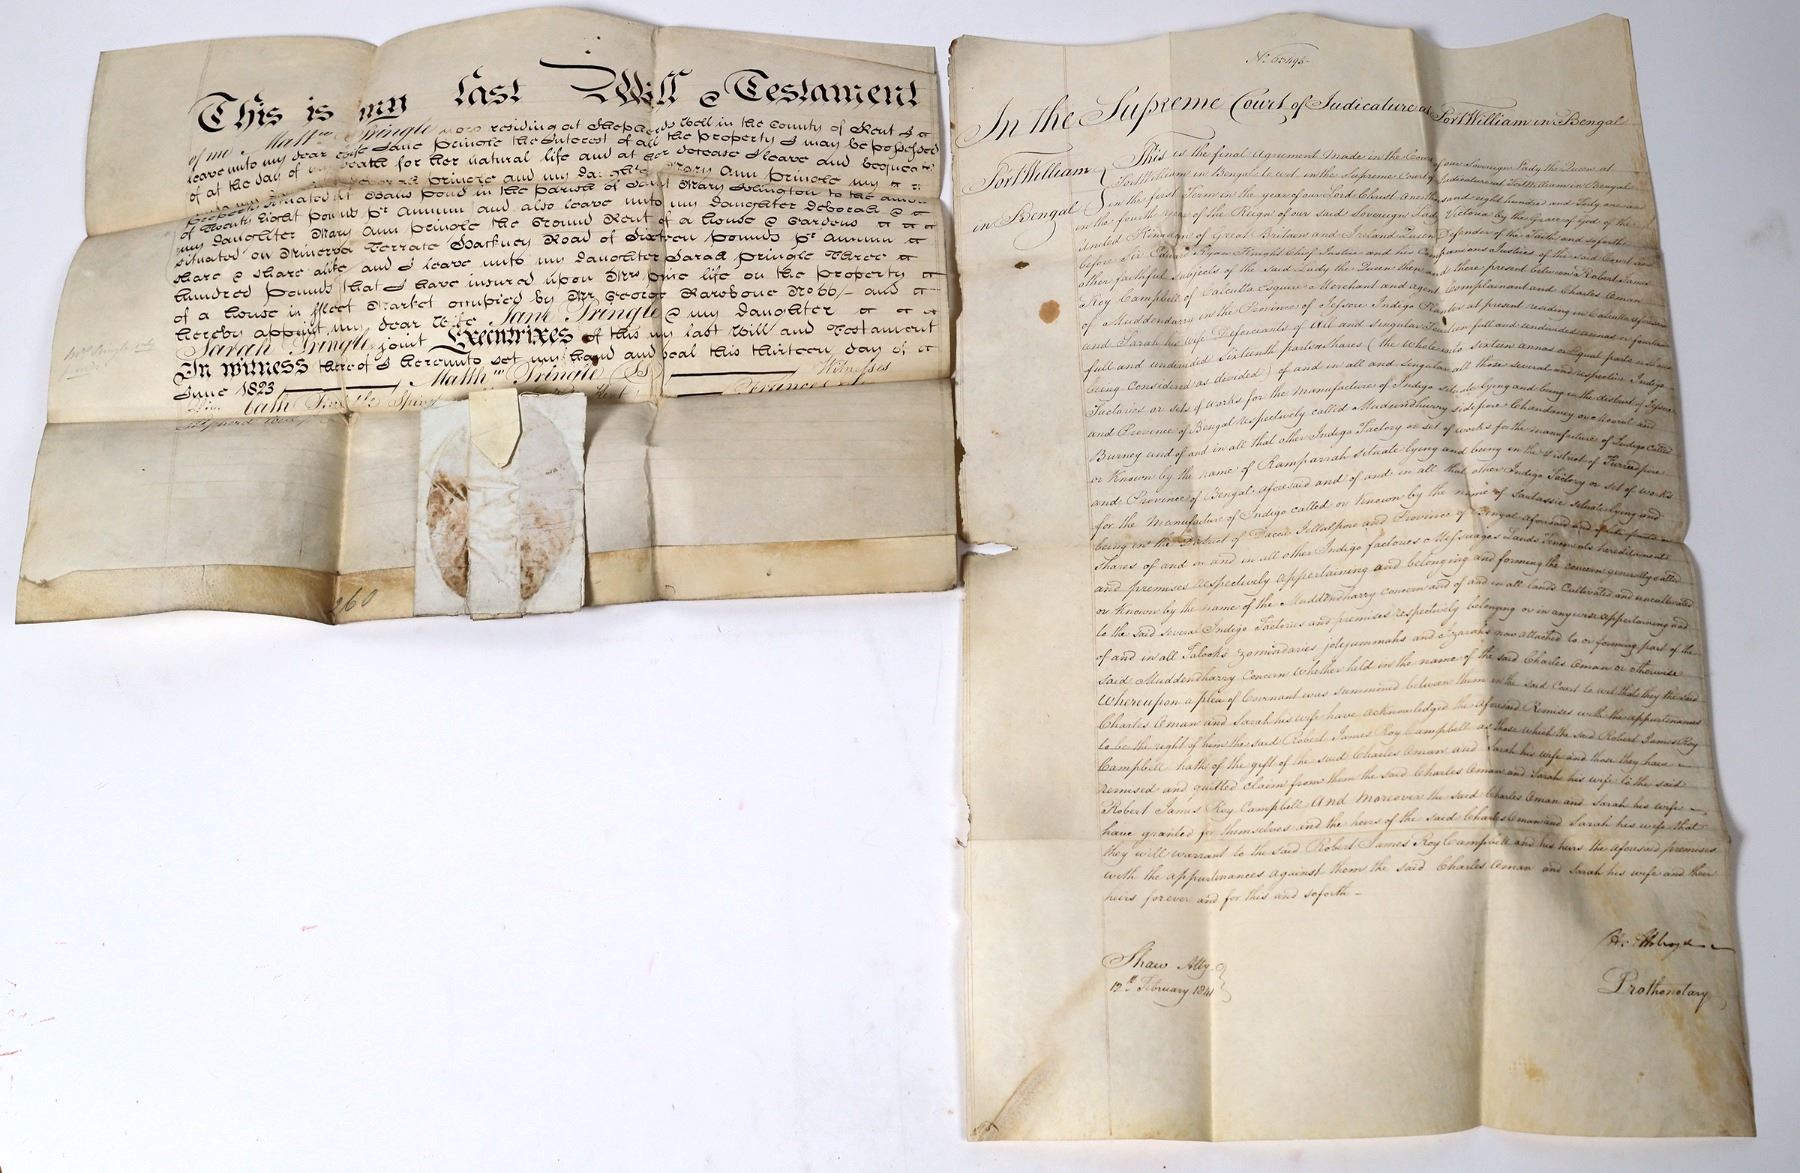 This is my last Will & Testament
of me Matthw Pringle now residing at Shepherds Well in the County of Kent I
leave unto my dear wife Jane Pringle the Interest of all the property I may be possessed
of at the day of my death for her natural life and at her decease I leave and bequeath
Pringle and my daughter Mary Ann Pringle my
property situated at pond in the parish of Saint Mary Islington to the
of Twenty Eight pounds pr Annum and also leave unto my daughter Deborah &
my daughter Mary Ann Pringle the Ground Rent of a house & Gardens
situated on Minerva Terrace Hackney Road of Sixteen pounds pr Annum
share & share alike and I leave unto my daughter Sarah Pringle three
hundred pounds that I have insured upon life on the property
of a house in fleet Market occupied by Mr George Barebone No 66/- and
hereby appoint my dear Wife Jane Pringle & my daughter
Sarah Pringle joint Executrixes of this my last Will and Testament
In witness thereof I hereunto set my hand and seal this thirteen day of
June 1823 Matthw Pringle Witnesses
260
In the Supreme Court of Judicature at Fort William in Bengal
Fort William
in Bengal
This is the final Agreement Made in the Court of our Sovereign Lady the Queen at
Fort William in Bengal to wit in the Supreme Court of Judicature at Fort William in Bengal
in the first Term in the year of our Lord Christ One thousand eight hundred and forty one and
in the fourth year of the Reign of our said Sovereign Lady Victoria by the Grace of God of the
United Kingdom of Great Britain and Ireland Queen Defender of the Faith and soforth
before Sir Edward Ryan Knight Chief Justice and his Companions Justices of the said Court and
other faithful subjects of the said Lady the Queen then and there present between Robert James
Roy Campbell of Calcutta Esquire Merchant and Agent Complainant and Charles Oman
of Muddendarry in the Province of Jessore Indigo Planter at present residing in Calcutta aforesaid
and Sarah his wife Deforciants of all and singular fourteen full and undivided annas or fourteen
full and undivided Sixteenth parts or shares (the whole into Sixteen annas or Equal parts or shares
being considered as divided) of and in all and singular all those several and respective Indigo
Factories or sets of works for the manufacture of Indigo situate lying and being in the district of Jessore
and Province of Bengal respectively called Muddendhurry Chandaney
Burney and of and in all that other Indigo Factory or set of works for the manufacture of Indigo called
or Known by the name of Ramparrah situate lying and being in the District of Furreedpore
and Province of Bengal aforesaid and of and in all that other Indigo Factory or set of works
for the manufacture of Indigo called or Known by the name of situate lying and
being in the District of Dacca Jillalpore and Province of Bengal aforesaid and of
shares of and in and in all other Indigo factories Messuages Lands Tenements hereditaments
and premises respectively appertaining and belonging and forming the concern generally called
or Known by the name of the Muddendharry Concern and of and in all lands Cultivated and uncultivated
to the said several Indigo Factories and premises respectively belonging or in anywise appertaining and
of and in all Talooks zemindaries jotejummahs and Izarahs now attached to or forming part of the
said Muddendharry Concern whether held in the name of the said Charles Oman or otherwise
Whereupon a plea of Covenant was summoned between them in the said Court to wit that they the said
Charles Oman and Sarah his wife have acknowledged the aforesaid Premises with the appurtenances
to be the right of him the said Robert James Roy Campbell as those which the said Robert James Roy
Campbell hath of the gift of the said Charles Oman and Sarah his wife and those they have
remised and quitted claim from them the said Charles Oman and Sarah his wife to the said
Robert James Roy Campbell And Moreover the said Charles Oman and Sarah his wife
have granted for themselves and the heirs of the said Charles Oman and Sarah his wife that
they will warrant to the said Robert James Roy Campbell and his heirs the aforesaid premises
with the appurtenances against them the said Charles Oman and Sarah his wife and their
heirs forever and for this and soforth
Shaw Atty
12th February 1841
Prothonotary